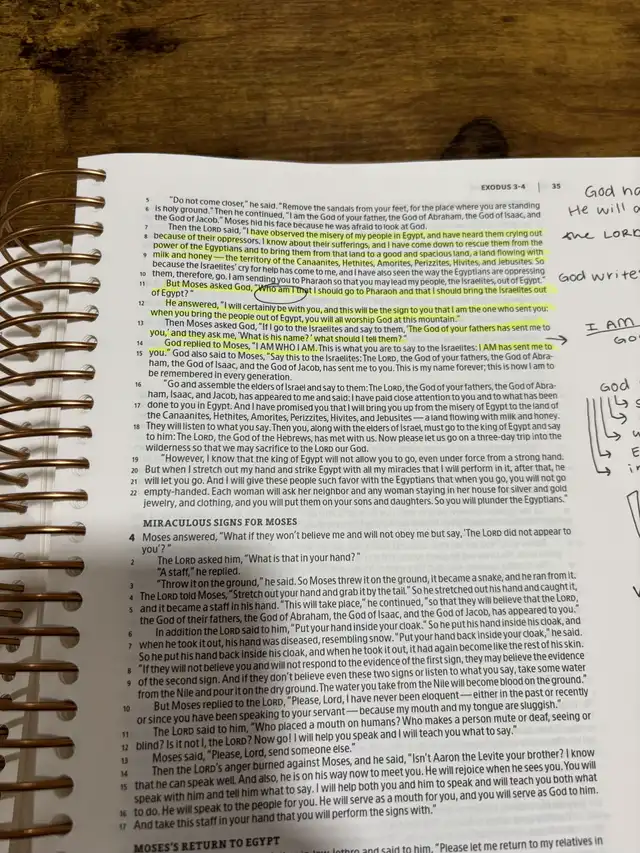 EXODUS 3-4 | 35
5 "Do not come closer," he said. "Remove the sandals from your feet, for the place where you are standing
6 is holy ground." Then he continued, "I am the God of your father, the God of Abraham, the God of Isaac, and
the God of Jacob." Moses hid his face because he was afraid to look at God.
7 Then the LORD said, "I have observed the misery of my people in Egypt, and have heard them crying out
8 because of their oppressors. I know about their sufferings, and I have come down to rescue them from the
power of the Egyptians and to bring them from that land to a good and spacious land, a land flowing with
9 milk and honey — the territory of the Canaanites, Hethites, Amorites, Perizzites, Hivites, and Jebusites. So
because the Israelites' cry for help has come to me, and I have also seen the way the Egyptians are oppressing
10 them, therefore, go. I am sending you to Pharaoh so that you may lead my people, the Israelites, out of Egypt."
11 But Moses asked God, "Who am I that I should go to Pharaoh and that I should bring the Israelites out
of Egypt?"
12 He answered, "I will certainly be with you, and this will be the sign to you that I am the one who sent you:
when you bring the people out of Egypt, you will all worship God at this mountain."
13 Then Moses asked God, "If I go to the Israelites and say to them, 'The God of your fathers has sent me to
you,' and they ask me, 'What is his name?' what should I tell them?"
14 God replied to Moses, "I AM WHO I AM. This is what you are to say to the Israelites: I AM has sent me to
15 you." God also said to Moses, "Say this to the Israelites: The LORD, the God of your fathers, the God of Abra-
ham, the God of Isaac, and the God of Jacob, has sent me to you. This is my name forever; this is how I am to
be remembered in every generation.
16 "Go and assemble the elders of Israel and say to them: The LORD, the God of your fathers, the God of Abra-
ham, Isaac, and Jacob, has appeared to me and said: I have paid close attention to you and to what has been
17 done to you in Egypt. And I have promised you that I will bring you up from the misery of Egypt to the land of
the Canaanites, Hethites, Amorites, Perizzites, Hivites, and Jebusites — a land flowing with milk and honey.
18 They will listen to what you say. Then you, along with the elders of Israel, must go to the king of Egypt and say
to him: The LORD, the God of the Hebrews, has met with us. Now please let us go on a three-day trip into the
wilderness so that we may sacrifice to the LORD our God.
19 "However, I know that the king of Egypt will not allow you to go, even under force from a strong hand.
20 But when I stretch out my hand and strike Egypt with all my miracles that I will perform in it, after that, he
21 will let you go. And I will give these people such favor with the Egyptians that when you go, you will not go
22 empty-handed. Each woman will ask her neighbor and any woman staying in her house for silver and gold
jewelry, and clothing, and you will put them on your sons and daughters. So you will plunder the Egyptians."
MIRACULOUS SIGNS FOR MOSES
4 Moses answered, "What if they won't believe me and will not obey me but say, 'The LORD did not appear to
you'?"
2 The LORD asked him, "What is that in your hand?"
"A staff," he replied.
3 "Throw it on the ground," he said. So Moses threw it on the ground, it became a snake, and he ran from it.
4 The LORD told Moses, "Stretch out your hand and grab it by the tail." So he stretched out his hand and caught it,
5 and it became a staff in his hand. "This will take place," he continued, "so that they will believe that the LORD,
the God of their fathers, the God of Abraham, the God of Isaac, and the God of Jacob, has appeared to you."
6 In addition the LORD said to him, "Put your hand inside your cloak." So he put his hand inside his cloak, and
7 when he took it out, his hand was diseased, resembling snow. "Put your hand back inside your cloak," he said.
So he put his hand back inside his cloak, and when he took it out, it had again become like the rest of his skin.
8 "If they will not believe you and will not respond to the evidence of the first sign, they may believe the evidence
9 of the second sign. And if they don't believe even these two signs or listen to what you say, take some water
from the Nile and pour it on the dry ground. The water you take from the Nile will become blood on the ground."
10 But Moses replied to the LORD, "Please, Lord, I have never been eloquent — either in the past or recently
or since you have been speaking to your servant — because my mouth and my tongue are sluggish."
11 The LORD said to him, "Who placed a mouth on humans? Who makes a person mute or deaf, seeing or
12 blind? Is it not I, the LORD? Now go! I will help you speak and I will teach you what to say."
13 Moses said, "Please, Lord, send someone else."
14 Then the LORD's anger burned against Moses, and he said, "Isn't Aaron the Levite your brother? I know
that he can speak well. And also, he is on his way now to meet you. He will rejoice when he sees you. You will
15 speak with him and tell him what to say. I will help both you and him to speak and will teach you both what
16 to do. He will speak to the people for you. He will serve as a mouth for you, and you will serve as God to him.
17 And take this staff in your hand that you will perform the signs with."
MOSES'S RETURN TO EGYPT
and said to him, "Please let me return to my relatives in
God
He will
the LORD
God write
I AM
God